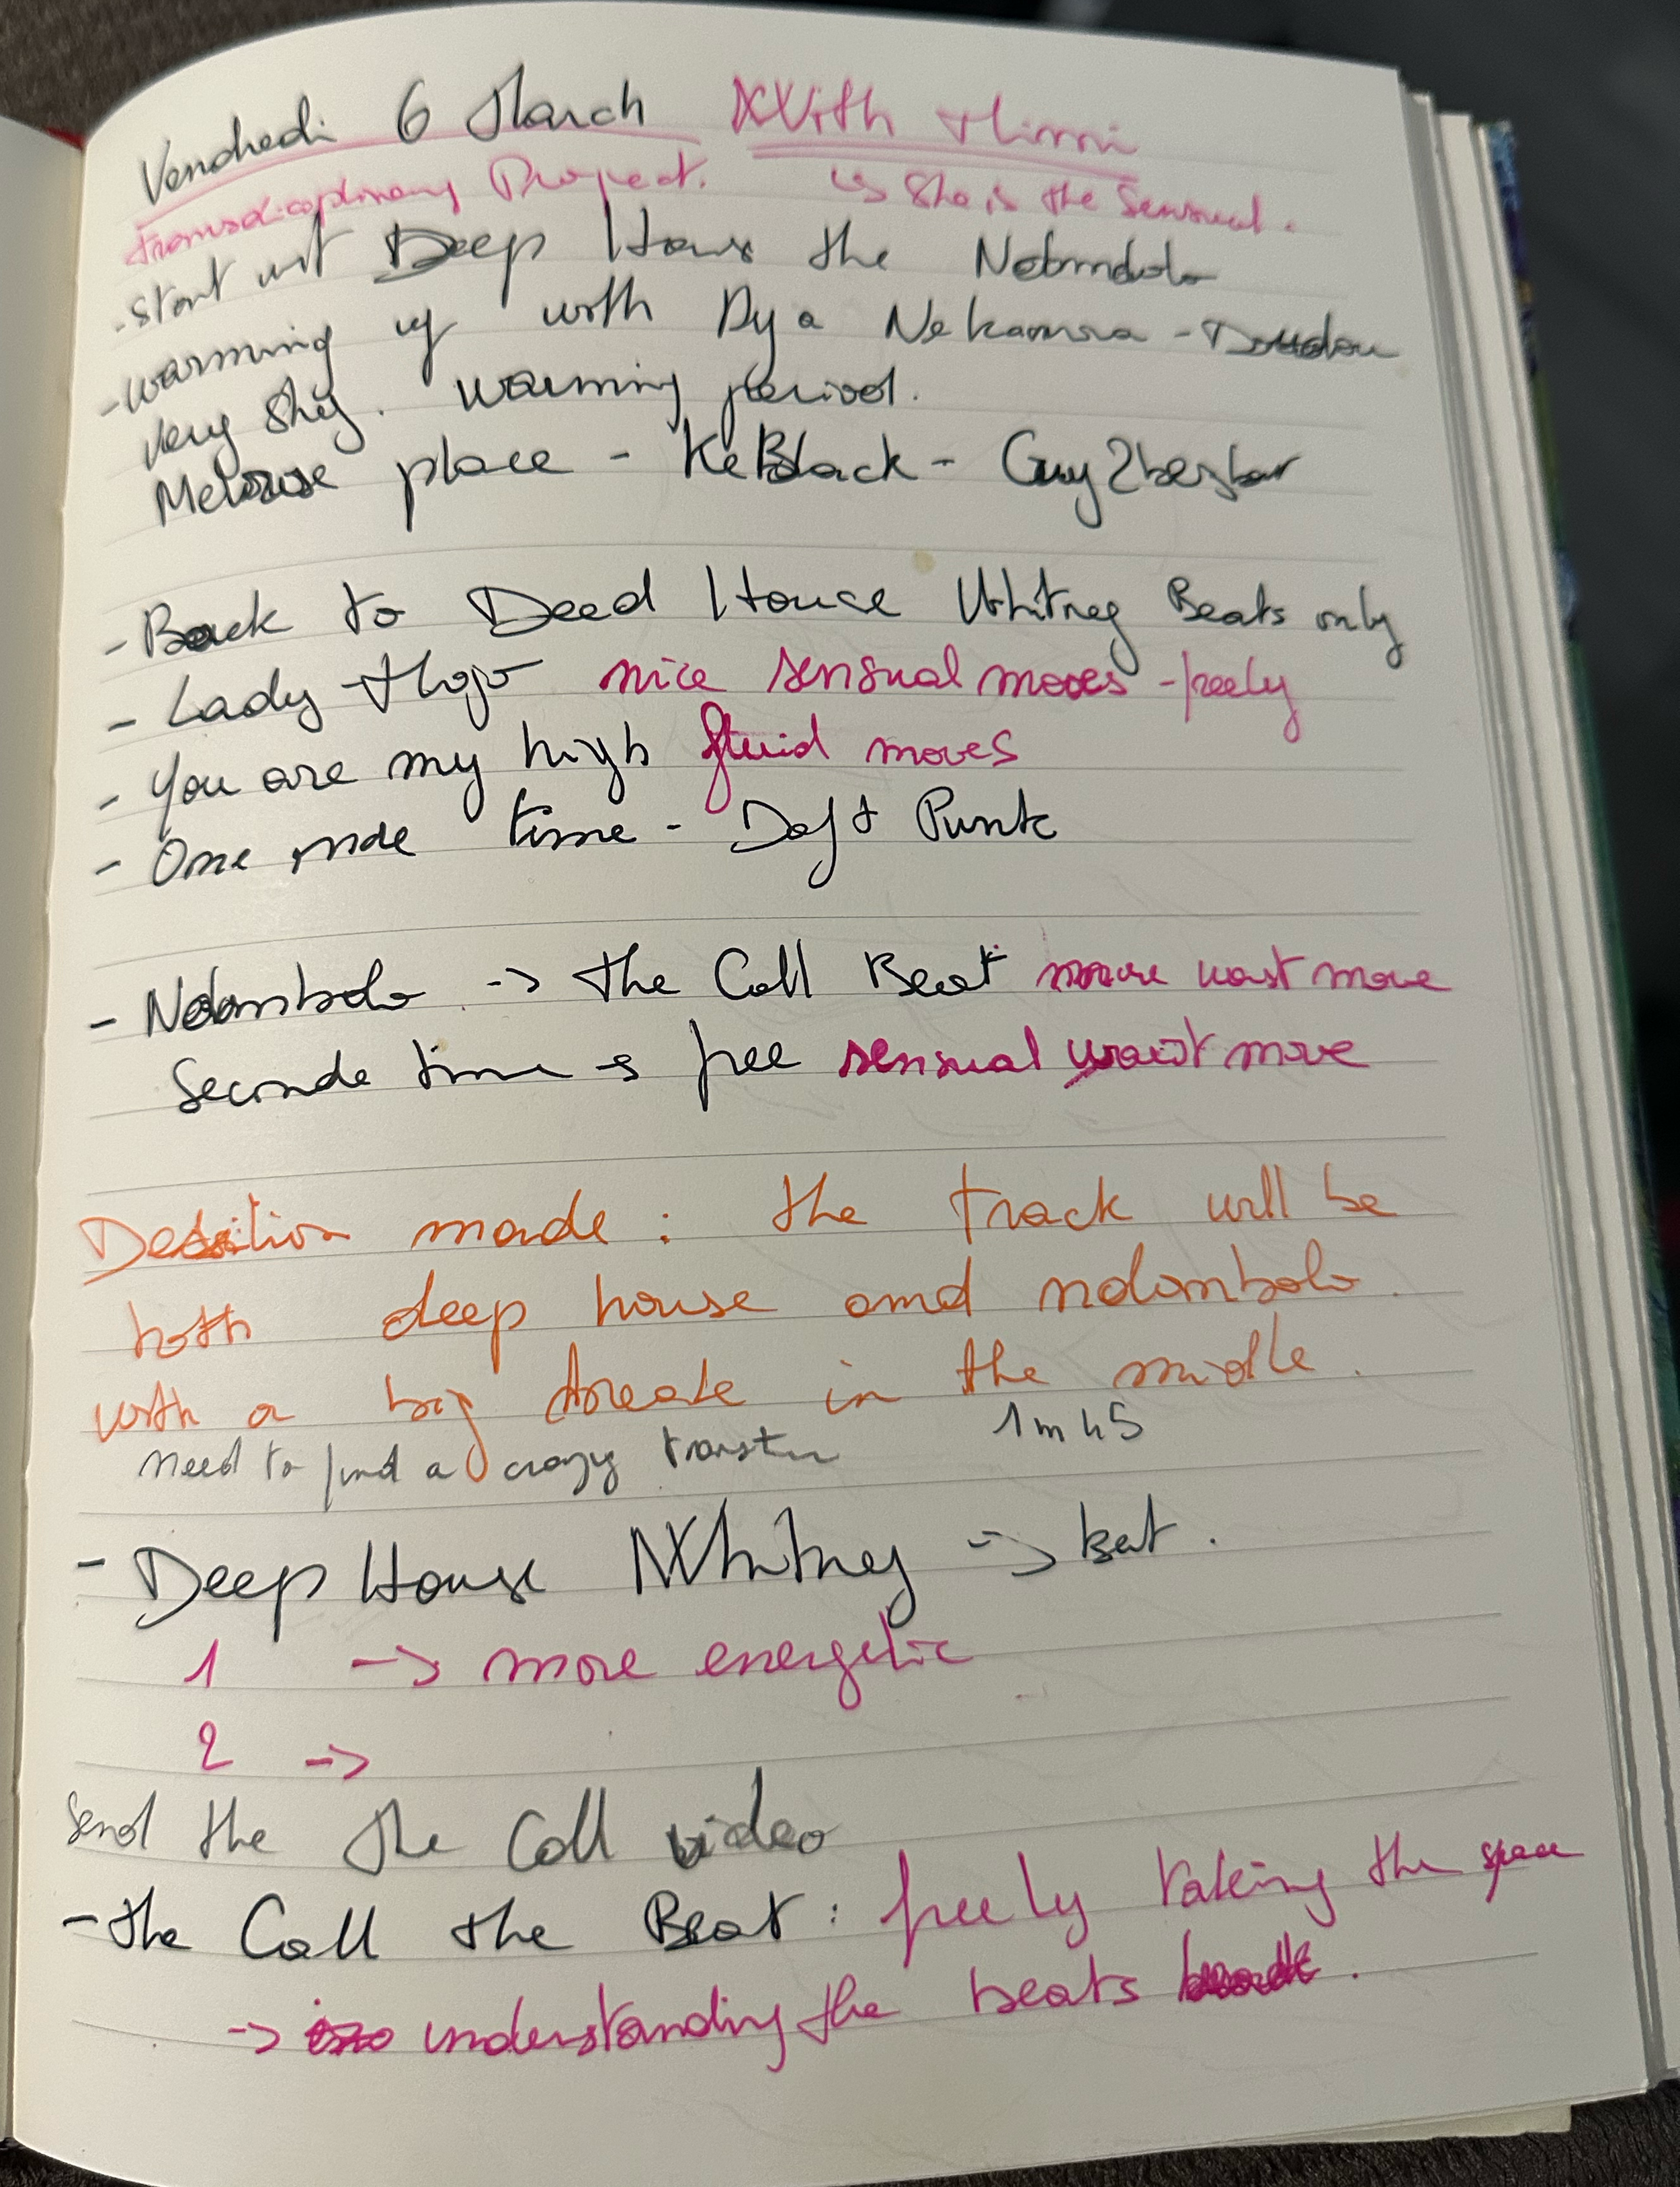 Vendredi 6 March With Mimi
transdicoplinary Project. ↳ She is the Sensual.
- Start wit Deep House the Ndombolo
- warming up with Aya Nakamura - Doudou
very shy. warming period.
Melrose place - KeBlack - Guy2bezbar
- Back to Deed House Whitney Beats only
- Lady Mojo nice sensual moves - freely
- You are my high fluid moves
- One more time - Daft Punk
- Ndombolo -> the Call Beat waist move
Seconde time -> free sensual waist move
Desition made: the track will be
both deep house and ndombolo.
with a big break in the midlle.
need to find a crazy 1m45
- Deep House Whitney -> beat.
1 -> more energetic
2 ->
Send the the Call video
- the Call the Beat: freely taking the space
-> understanding the beats